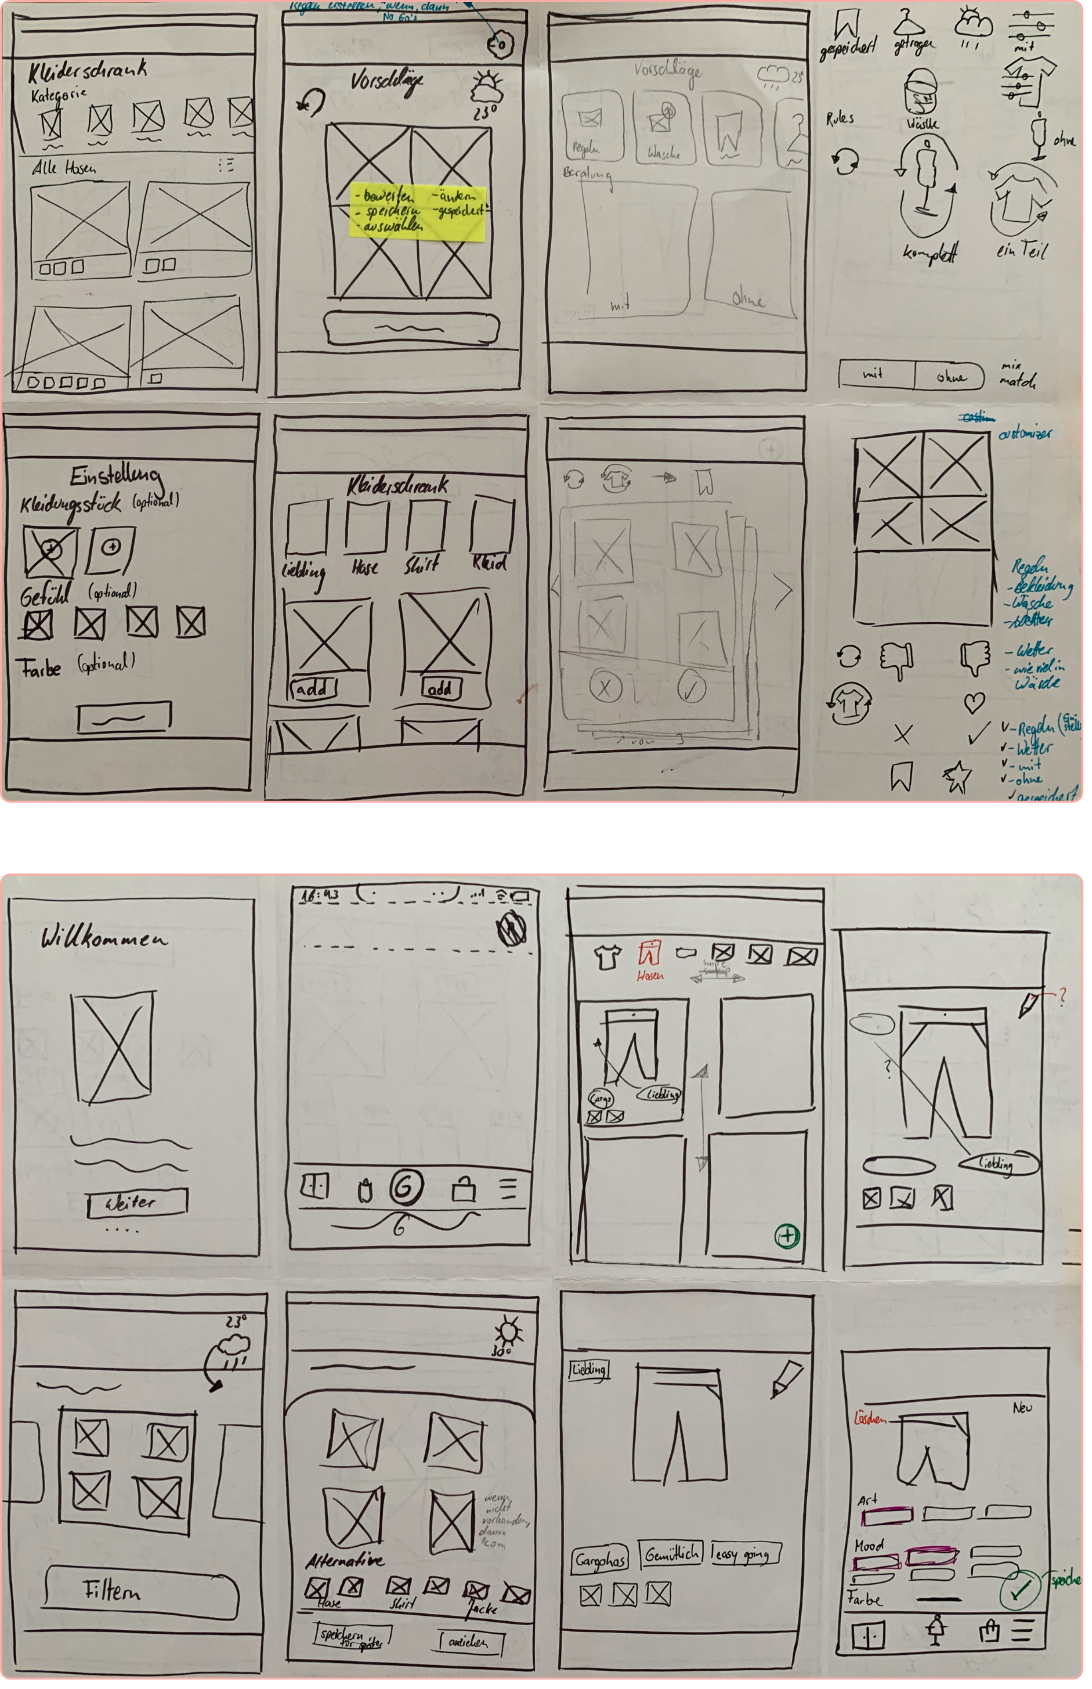 Regeln erstellen, "wenn, dann"
No Go's
Kleiderschrank
Kategorie
Alle Hosen
Vorschläge
23°
- bewerten
- speichern
- auswählen
- ändern
- gespeichert
Vorschläge
25°
Regeln
Wäsche
Beratung
mit
ohne
gespeichert
getragen
mit
Rules
Wäsche
ohne
komplett
ein Teil
mit
ohne
mix
match
Einstellung
Kleidungsstück (optional)
Gefühl (optional)
Farbe (optional)
Kleiderschrank
Liebling
Hose
Shirt
Kleid
add
add
customizer
Regeln
- Bekleidung
- Wäsche
- Wetter
- Wetter
- wie viel in
Wäsche
- Regeln
- Wetter
- mit
- ohne
gespeichert
Willkommen
Weiter
16:43
G
G
Hosen
Cargo
Liebling
?
?
Liebling
23°
Filtern
30°
wenn
nicht
vorhanden,
dann
Alternative
Hose
Shirt
Jacke
speichern
für später
anziehen
Liebling
Cargohos
Gemütlich
easy going
Neu
Löschen
Art
Mood
Farbe